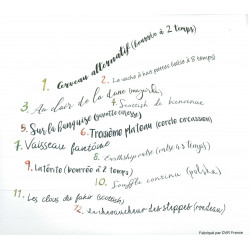 1. Cerveau alternatif (bourrée à 2 temps)
2. La vache à huit pattes (valse à 8 temps)
3. Au clair de la dune (mazurka)
4. Scottish de bienvenue
5. Sur la banquise (chapelloise)
6. Troisième plateau (cercle circassien)
7. Vaisseau fantôme
8. Earthship valse (valse 4 3 temps)
9. Latérite (bourrée à 2 temps)
10. Souffle continu (polska)
11. Les clous du fakir (scottish)
12. Le chroniqueur des steppes (rondeau)
Fabriqué par DVR France